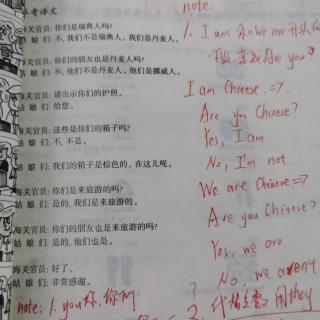 考译文
海关官员: 你们是瑞典人吗?
姑 娘 们: 不, 我们不是瑞典人。我们是丹麦人。
海关官员: 你们的朋友也是丹麦人吗?
姑 娘 们: 不, 他们不是丹麦人。他们是挪威人。
海关官员: 请出示你们的护照。
姑 娘 们: 给您。
海关官员: 这些是你们的箱子吗?
姑 娘 们: 不, 不是。
姑 娘 们: 我们的箱子是棕色的。在这儿呢。
海关官员: 你们是来旅游的吗?
姑 娘 们: 是的, 我们是来旅游的。
海关官员: 你们的朋友也是来旅游的吗?
姑 娘 们: 是的, 他们也是。
海关官员: 好了。
姑 娘 们: 非常感谢。
note: 1. you 你, 你们
note:
1. I am 或 we are 开头
Are you?
I am Chinese. =>
Are you Chinese?
Yes, I am.
No, I'm not.
We are Chinese =>
Are you Chinese?
Yes, we are.
No, we aren't
用 they